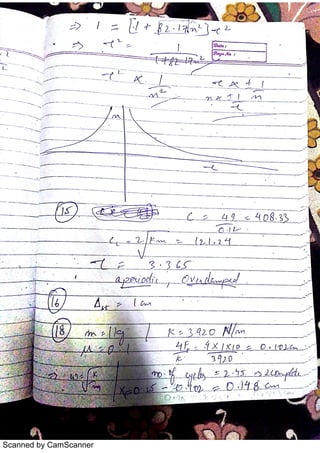 ⇒ 1 = [1 + 82.17n²] r²
⇒ r² = 1 / (1 + 82.17n²)
Date :
Page No :
r² ∝ 1/n²
r ∝ ± 1/n
n ∝ ± 1/r
n
r
15
C = 49/0.12 = 408.33
Cc = 2√km = 121.24
ζ = 3.365
aperiodic, Overdamped
16 Δst = 1 cm
18 m = 1 kg | K = 3920 N/m
μ = 0.1 4F/K = 4×1×10/3920 = 0.102cm
⇒ ω = √K/m no. of cycles = 2.45 → 2 complete
= 0.148 cm
Scanned by CamScanner